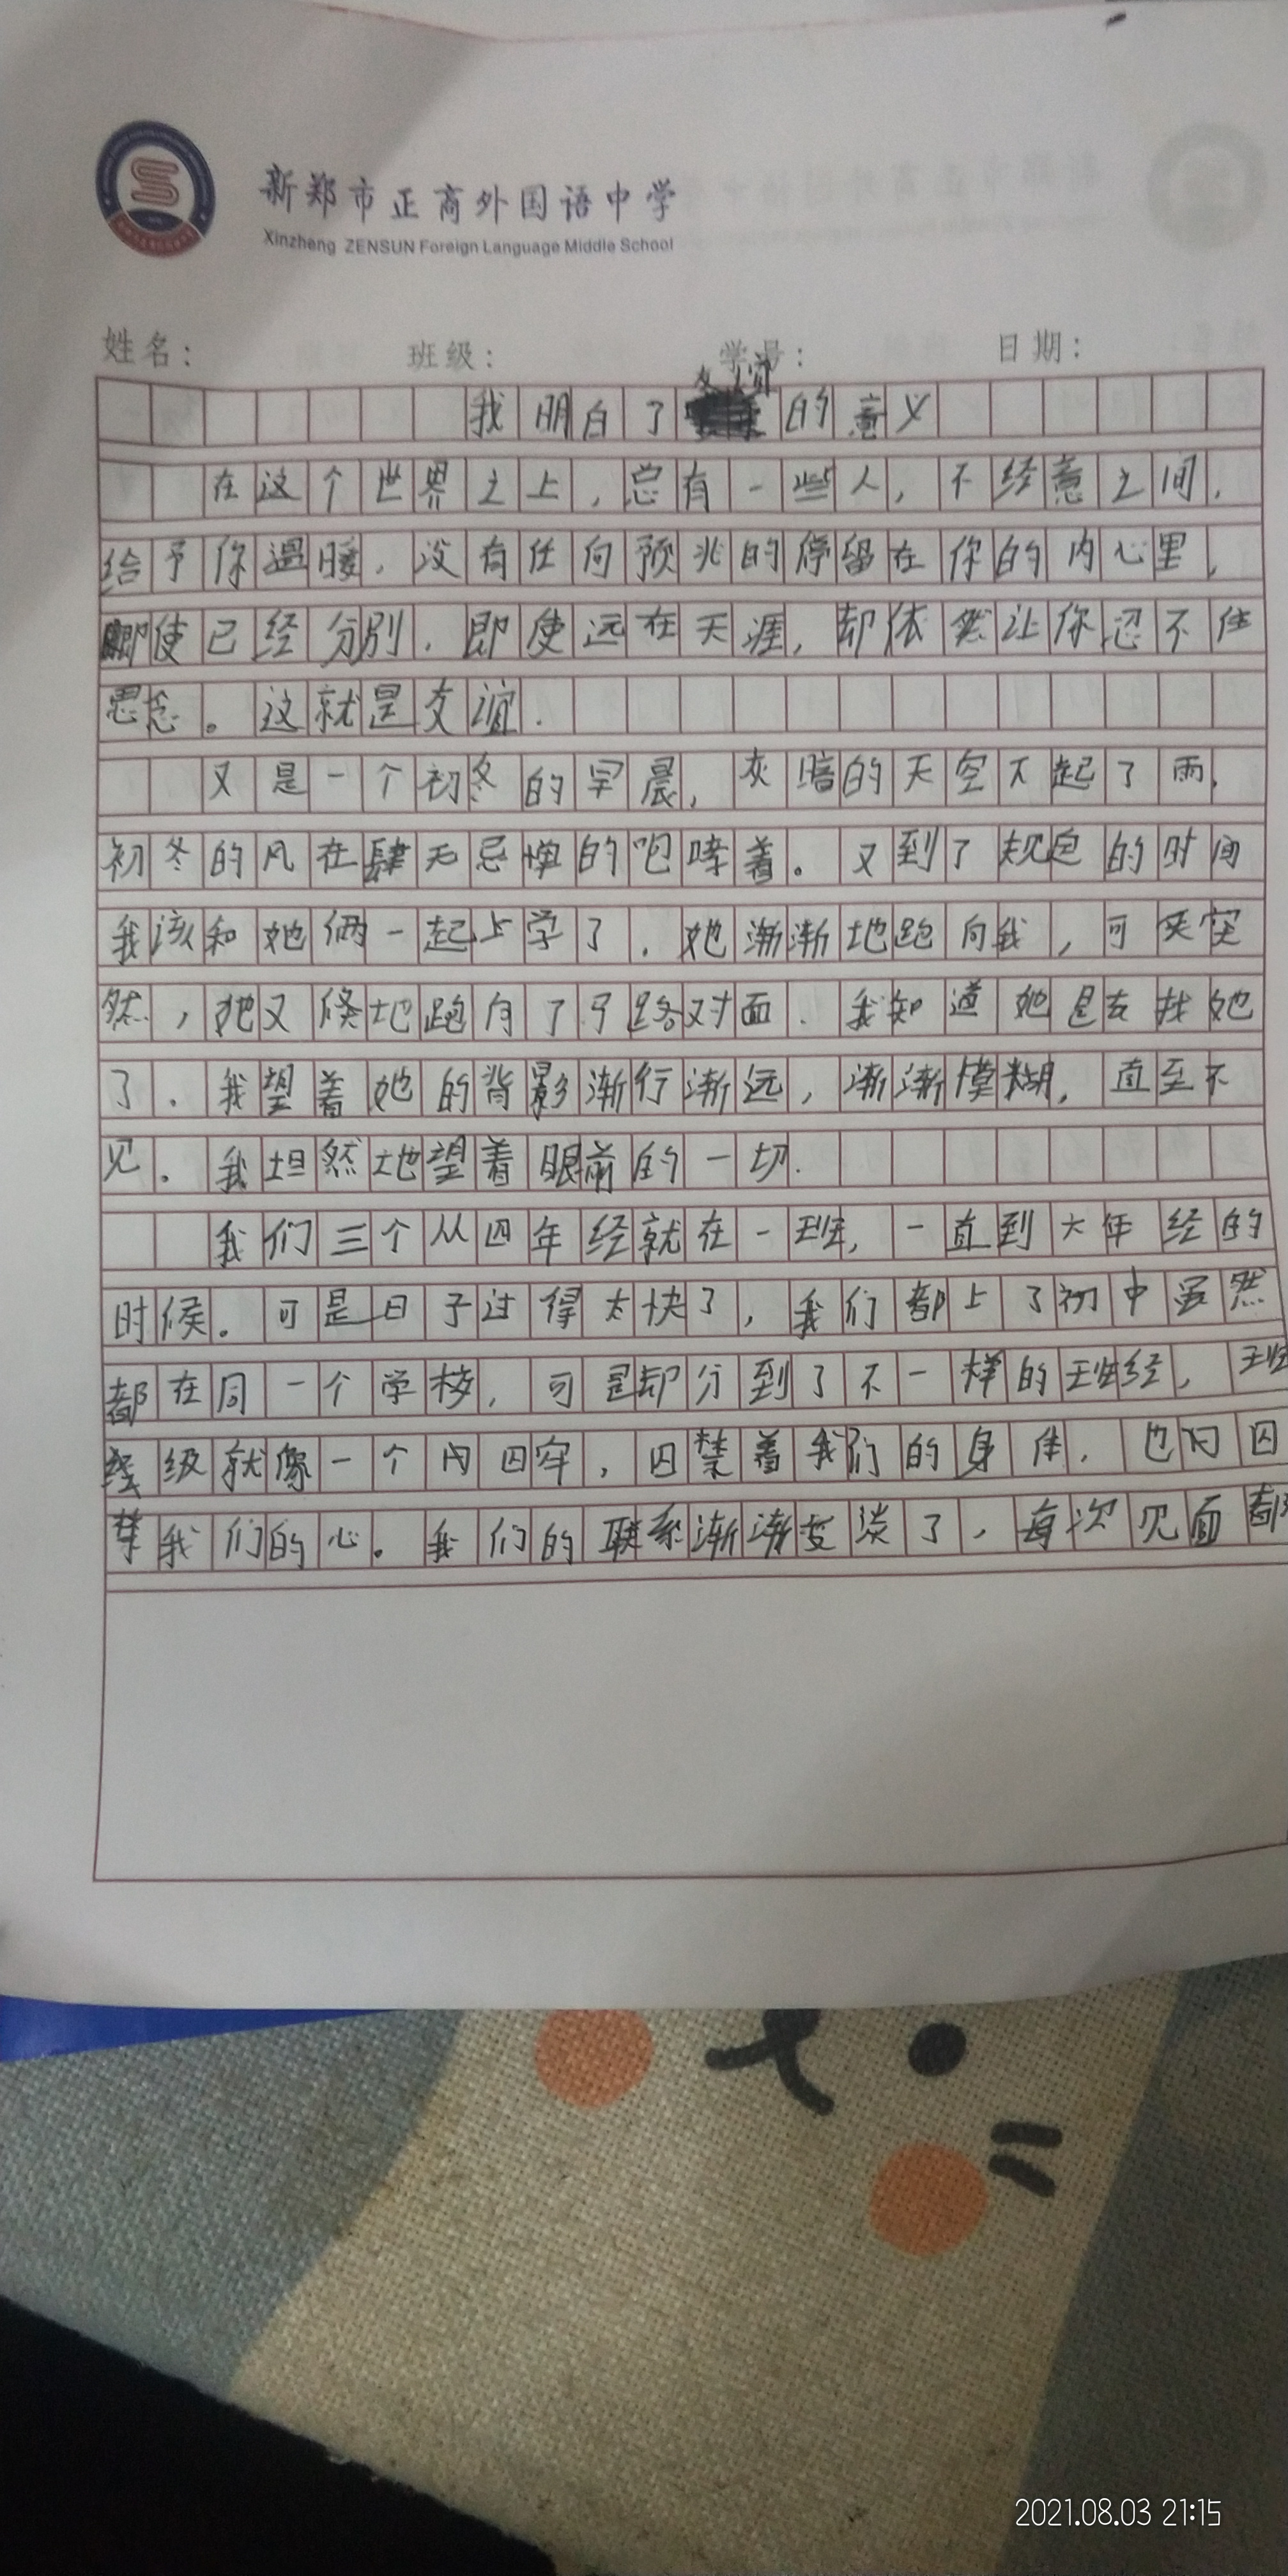 新郑市正商外国语中学
Xinzheng ZENSUN Foreign Language Middle School
姓名： 班级： 学号： 日期：
我明白了友谊的意义
在这个世界之上，总有一些人，不经意之间，
给予你温暖，没有任何预兆的停留在你的内心里，
即使已经分别，即使远在天涯，却依然让你忍不住
思念。这就是友谊.
又是一个初冬的早晨，灰暗的天空下起了雨，
初冬的风在肆无忌惮的咆哮着。又到了规定的时间
我该和她俩一起上学了．她渐渐地跑向我，可突
然，她又倏地跑向了马路对面．我知道她是去找她
了．我望着她的背影渐行渐远，渐渐模糊，直至不
见．我坦然地望着眼前的一切．
我们三个从四年经就在一班，一直到六年经的
时候。可是日子过得太快了，我们都上了初中虽然
都在同一个学校，可是却分到了不一样的班经，班
级就像一个囚牢，囚禁着我们的身体，也囚
禁我们的心。我们的联系渐渐变淡了，每次见面都
2021.08.03 21:15